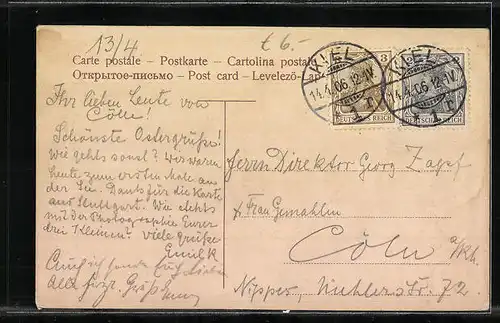 13/4
£ 6.-
Carte postale - Postkarte - Cartolina postale
Открытое-письмо - Post card - Levelező-
KIEL
14.4.06 12-1V
1r
3
DEUTSCHES REICH
KIEL
14.4.06 12-1V
1r
DEUTSCHES REICH
Ihr lieben Leute von
Cöln!
Schönste Ostergrüße!
Wie gehts sonst? Wir waren
heute zum ersten Male an
der See. Dank für die Karte
aus Stuttgart. Wie stehts
mit der Photographie Eurer
drei Kleinen? Viele Grüße
Emil K
Auch ich sende Euch Lieben
Alle herzl. Grüße
Herrn Direktor Georg Zapf
& Frau Gemahlin
Cöln a/Rh.
Nippes, Str. 72.